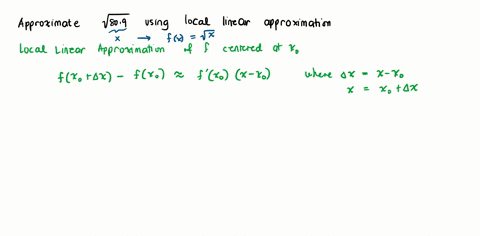 Approximate √80.9 using local linear approximation
x → f(x) = √x
Local Linear Approximation of f centered at x₀
f(x₀+Δx) - f(x₀) ≈ f'(x₀) (x-x₀) where Δx = x-x₀
x = x₀ + Δx